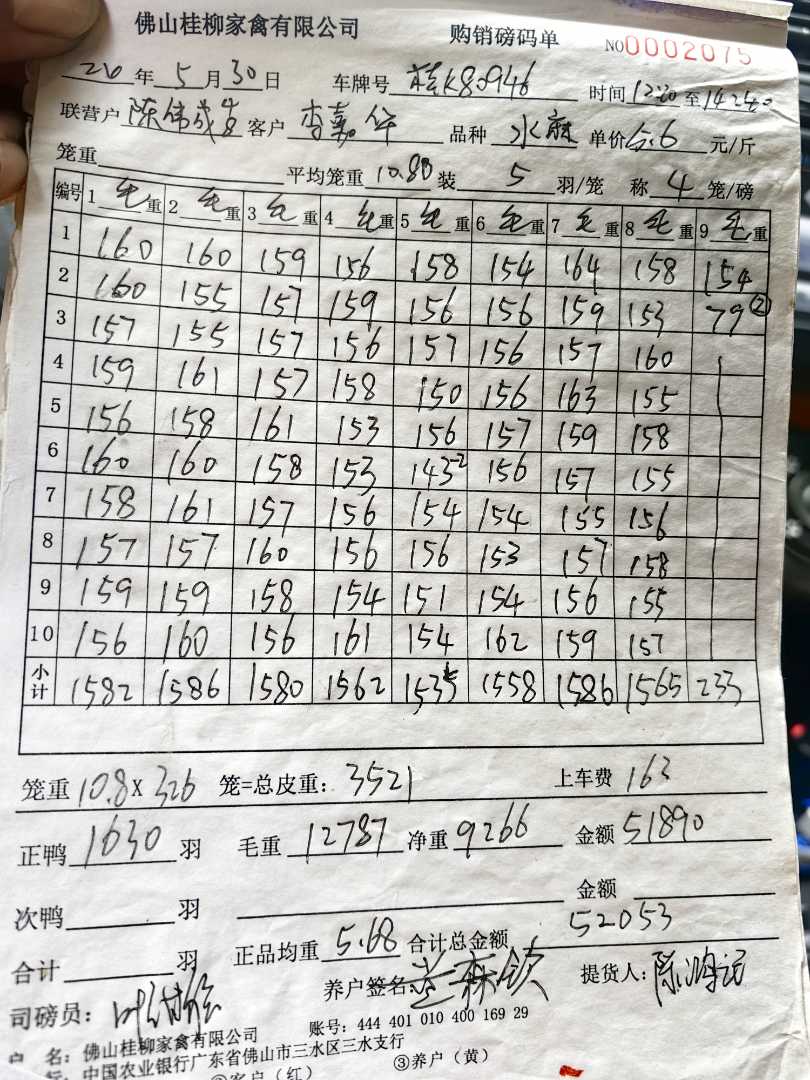 佛山桂柳家禽有限公司 购销磅码单 NO0002075
20 年 5 月 30 日 车牌号 桂K80946 时间 12:20 至 14:24
联营户 陈伟成 客户 李嘉华 品种 水麻 单价 5.6 元/斤
笼重 平均笼重 10.80 装 5 羽/笼 称 4 笼/磅
编号 1 毛 重 2 毛 重 3 毛 重 4 毛 重 5 毛 重 6 毛 重 7 毛 重 8 毛 重 9 毛 重
1 160 160 159 156 158 154 164 158 154
2 160 155 157 159 156 156 159 153 79 ②
3 157 155 157 156 157 156 157 160
4 159 161 157 158 150 156 163 155
5 156 158 161 153 156 157 159 158
6 160 160 158 153 143-2 156 157 155
7 158 161 157 156 154 154 155 156
8 157 157 160 156 156 153 157 158
9 159 159 158 154 151 154 156 155
10 156 160 156 161 154 162 159 157
小计 1582 1586 1580 1562 1535 1558 1586 1565 233
笼重 10.8 X 326 笼=总皮重: 3521 上车费 163
正鸭 1630 羽 毛重 12787 净重 9266 金额 51890
次鸭 羽 金额
52053
合计 羽 正品均重 5.68 合计总金额
司磅员: 养户签名: 提货人:
户 名: 佛山桂柳家禽有限公司 账号: 444 401 010 400 169 29
中国农业银行广东省佛山市三水区三水支行
②客户（红） ③养户（黄）